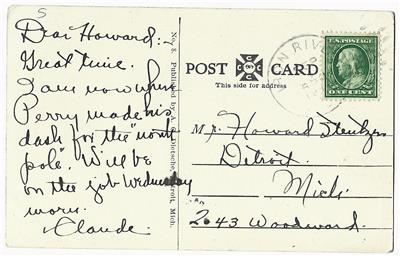 5
Dear Howard:-
Great time.
I am now where
Perry made his
dash for the "north
pole". Will be
on the job Wednesday
morn.
Claude.
No. 8. Published by
Detroit, Mich.
POST CARD
This side for address
RON RIV
U.S. POSTAGE
ONE CENT
Mr. Howard
Detroit
Mich.
243 Woodward.